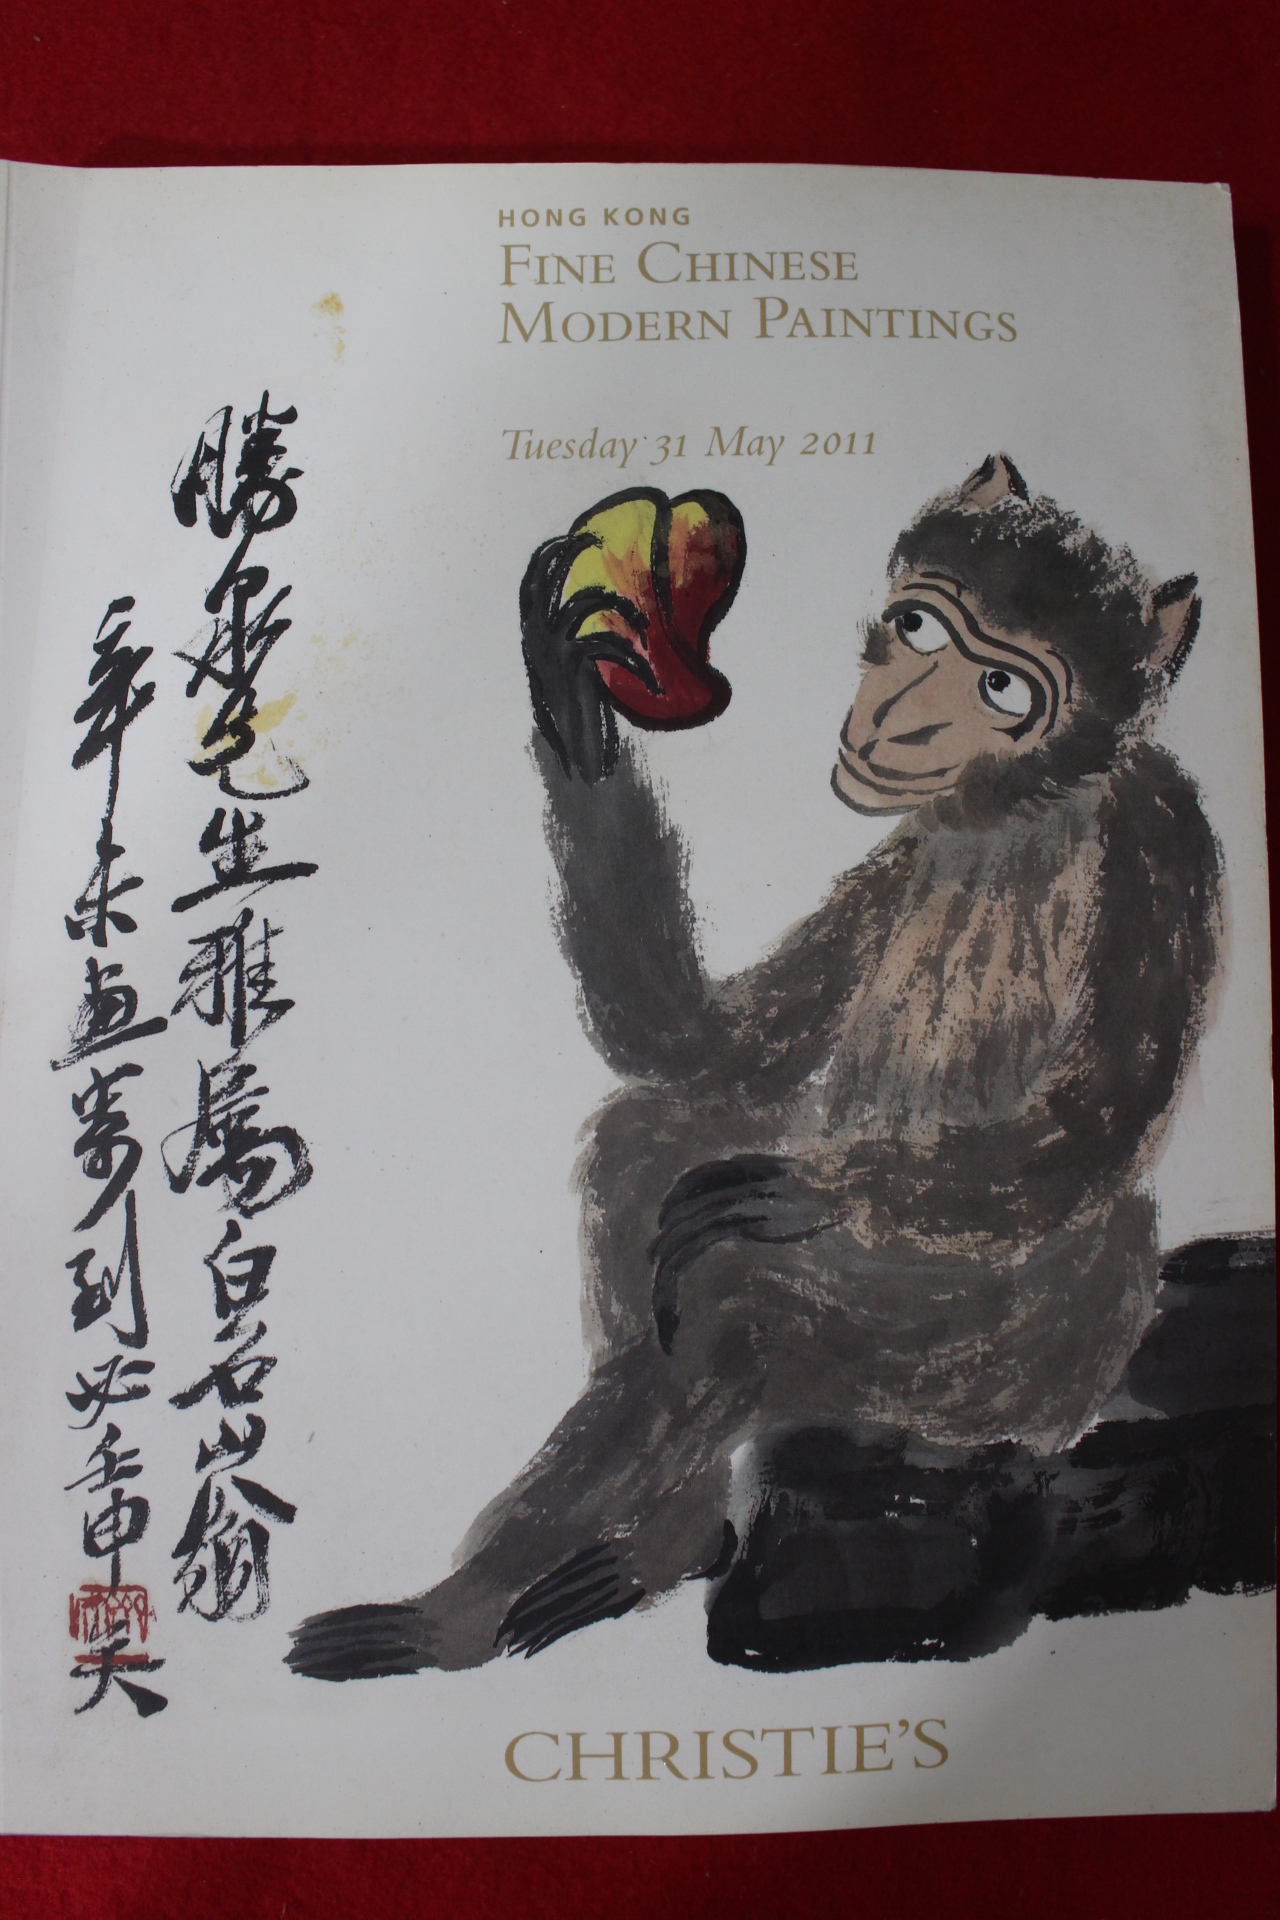 HONG KONG
FINE CHINESE
MODERN PAINTINGS
Tuesday 31 May 2011
勝泉先生雅屬白石山翁
辛未畫寄到必壬申矣
CHRISTIE'S